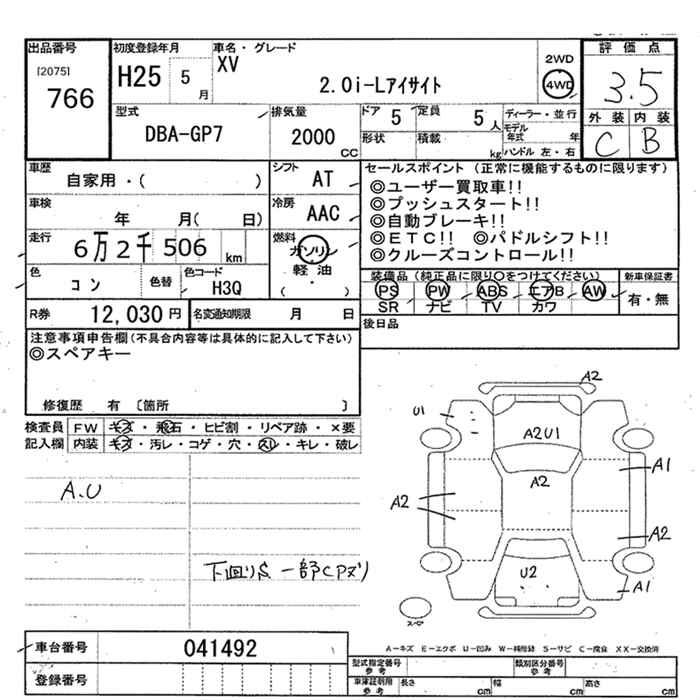 出品番号
[2075]
766
初度登録年月
H25 5月
車名・グレード
XV
2.0i-Lアイサイト
2WD
4WD
評価点
3.5
外装 内装
C B
型式
DBA-GP7
排気量
2000 CC
ドア 5
定員 5人
形状
積載 kg
ディーラー・並行
モデル年式 年
ハンドル 左・右
車歴
自家用・( )
シフト AT
車検
年 月( 日)
冷房 AAC
走行
6万2千506 km
燃料
ガソリン
軽油
( ・ )
色
コン
色替
色コード
H3Q
R券 12,030円
名変通知期限 月 日
セールスポイント(正常に機能するものに限ります)
◎ユーザー買取車!!
◎プッシュスタート!!
◎自動ブレーキ!!
◎ETC!! ◎パドルシフト!!
◎クルーズコントロール!!
装備品(純正品に限り○をつけてください)
PS PW ABS エアB AW
SR ナビ TV カワ
新車保証書
有・無
後日品
注意事項申告欄(不具合内容等は具体的に記入して下さい)
◎スペアキー
修復歴 有 〔箇所 〕
検査員記入欄
FW キズ・飛石・ヒビ割・リペア跡・×要
内装 キズ・汚レ・コゲ・穴・スレ・キレ・破レ
A.U
下回りS 一部CPヌリ
A2
U1
A2U1
A2
A1
A2
A2
U2
A1
スペア
A-キズ E-エクボ U-凹み W-補修跡 S-サビ C-腐食 XX-交換済
車台番号 041492
登録番号
型式指定番号 参考
類別区分番号 参考
車庫証明用 参考
長さ cm
幅 cm
高さ cm